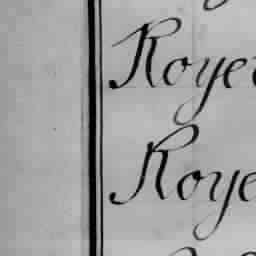 Roye
Roye